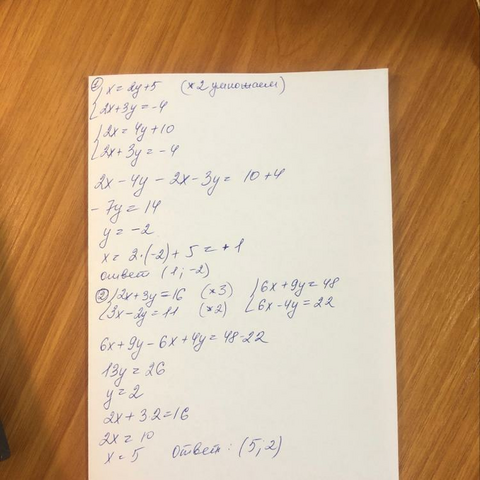 ① { x = 2y+5 (×2 умножаем)
{ 2x+3y = -4
{ 2x = 4y+10
{ 2x+3y = -4
2x - 4y - 2x - 3y = 10+4
- 7y = 14
y = -2
x = 2·(-2) + 5 = +1
ответ (1; -2)
② { 2x+3y = 16 (×3) { 6x + 9y = 48
{ 3x-2y = 11 (×2) { 6x - 4y = 22
6x + 9y - 6x + 4y = 48-22
13y = 26
y = 2
2x + 3·2 = 16
2x = 10
x = 5 Ответ: (5; 2)